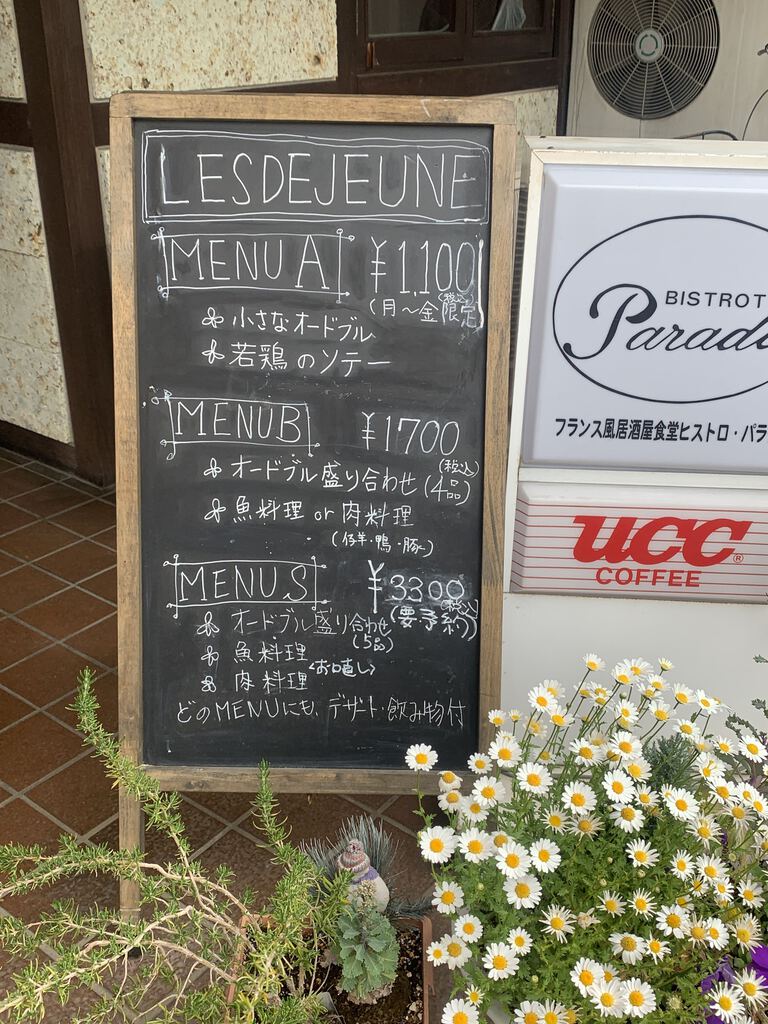 LESDEJEUNE
MENU A ¥1,100
(税込)
(月〜金限定)
小さなオードブル
若鶏のソテー
MENU B ¥1700
(税込)
オードブル盛り合わせ(4品)
魚料理 or 肉料理
(仔羊・鴨・豚)
MENU S ¥3300
(税込)
(要予約)
オードブル盛り合わせ
(5品)
魚料理
<お口直し>
肉料理
どのMENUにも、デザート・飲み物付
BISTROT
Parad
フランス風居酒屋食堂ビストロ・パラ
UCC
COFFEE